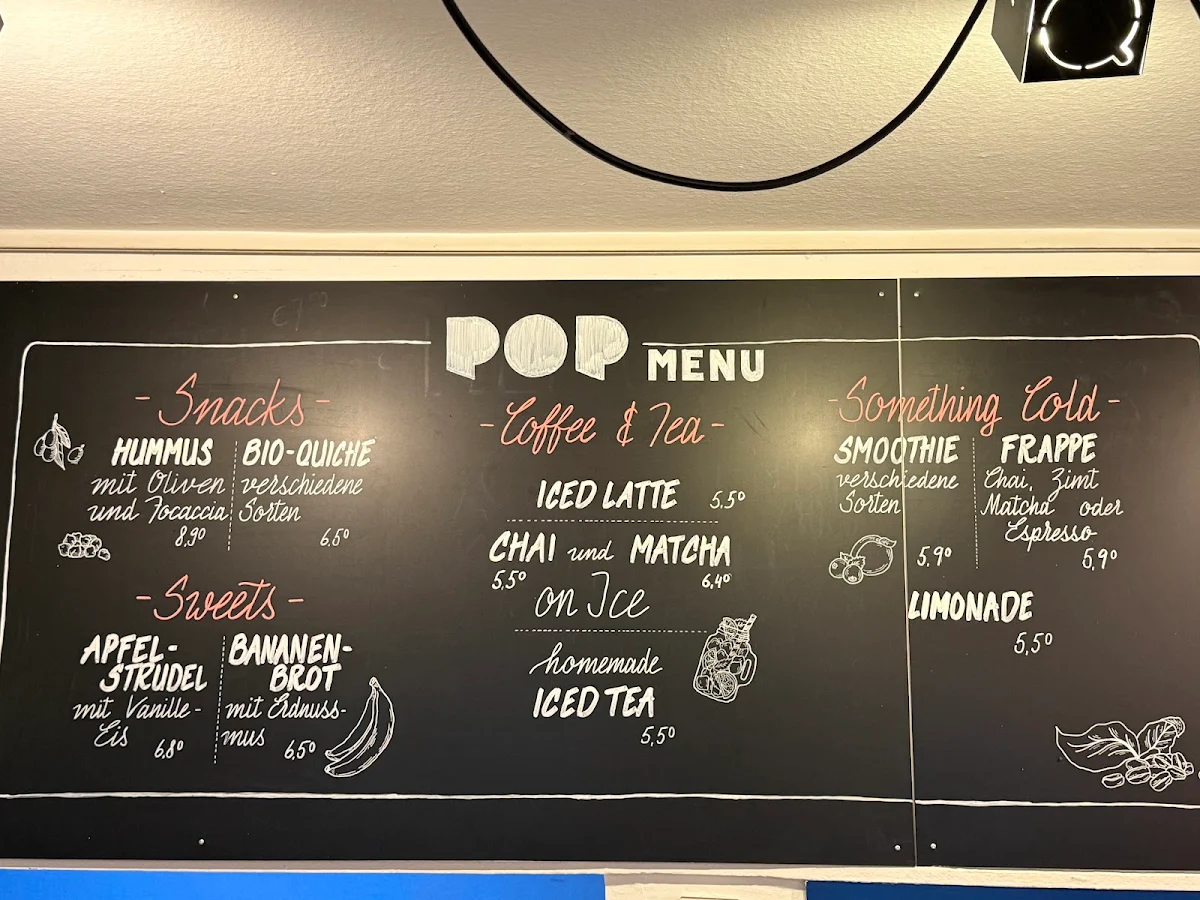 POP MENU
-Snacks-
HUMMUS
mit Oliven
und Focaccia
8,90
BIO-QUICHE
verschiedene
Sorten
6,50
-Sweets-
APFEL-
STRUDEL
mit Vanille-
Eis 6,80
BANANEN-
BROT
mit Erdnuss-
mus 6,50
-Coffee & Tea-
ICED LATTE 5,50
CHAI und MATCHA
5,50 6,40
on Ice
homemade
ICED TEA
5,50
-Something Cold-
SMOOTHIE
verschiedene
Sorten
5,90
FRAPPE
Chai, Zimt
Matcha oder
Espresso
5,90
LIMONADE
5,50